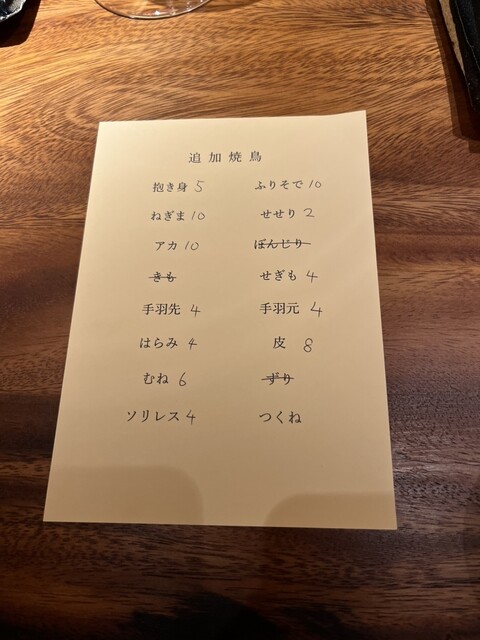 追加焼鳥
抱き身 5 ふりそで 10
ねぎま 10 せせり 2
アカ 10 ぼんじり
きも せぎも 4
手羽先 4 手羽元 4
はらみ 4 皮 8
むね 6 ずり
ソリレス 4 つくね